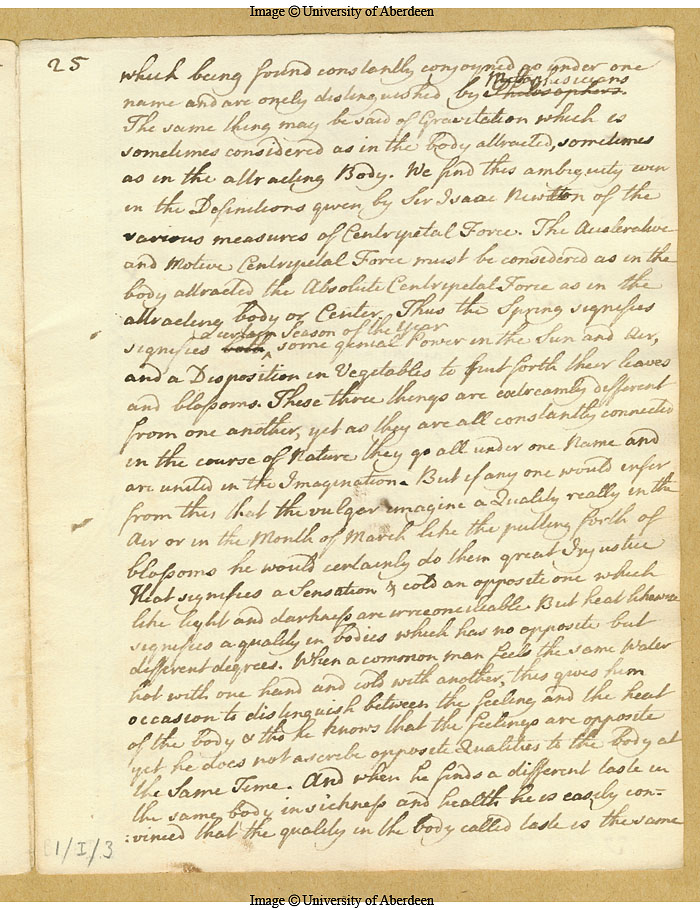 Image © University of Aberdeen
25
which being found constantly conjoyned go under one
name and are onely distinguished by Philosophers.
The same thing may be said of Gravitation which is
sometimes considered as in the body attracted, sometimes
as in the attracting Body. We find this ambiguity even
in the Definitions given by Sir Isaac Newtton of the
various measures of Centripetal Force. The Accelerative
and Motive Centripetal Force must be considered as in the
body attracted the Absolute Centripetal Force as in the
attracting body or Center. Thus the Spring signifies
a certain Season of the Year
signifies both, some genial Power in the Sun and Air,
and a Disposition in Vegetables to put forth their leaves
and blaſsoms. These three things are extreamly different
from one another, yet as they are all constantly connected
in the course of Nature they go all under one Name and
are united in the Imagination. But if any one would infer
from this that the vulgar imagine a Quality really in the
Air or in the Month of March like the putting forth of
blaſsoms he would certainly do them great Injustice
Heat signifies a Sensation & cold an opposite one which
like light and darkneſs are irreconcileable But heat likewise
signifies a quality in bodies which has no opposite but
different degrees. When a common man feels the same Water
hot with one hand and cold with another, this gives him
occasion to distinguish between the feeling and the heat
of the body & tho he knows that the feelings are opposite
yet he does not ascribe opposite Qualities to the body at
the Same Time. And when he finds a different taste in
the same body in sickneſs and health he is easily con=
:vinced that the quality in the body called taste is the same
1/I/3
Image © University of Aberdeen